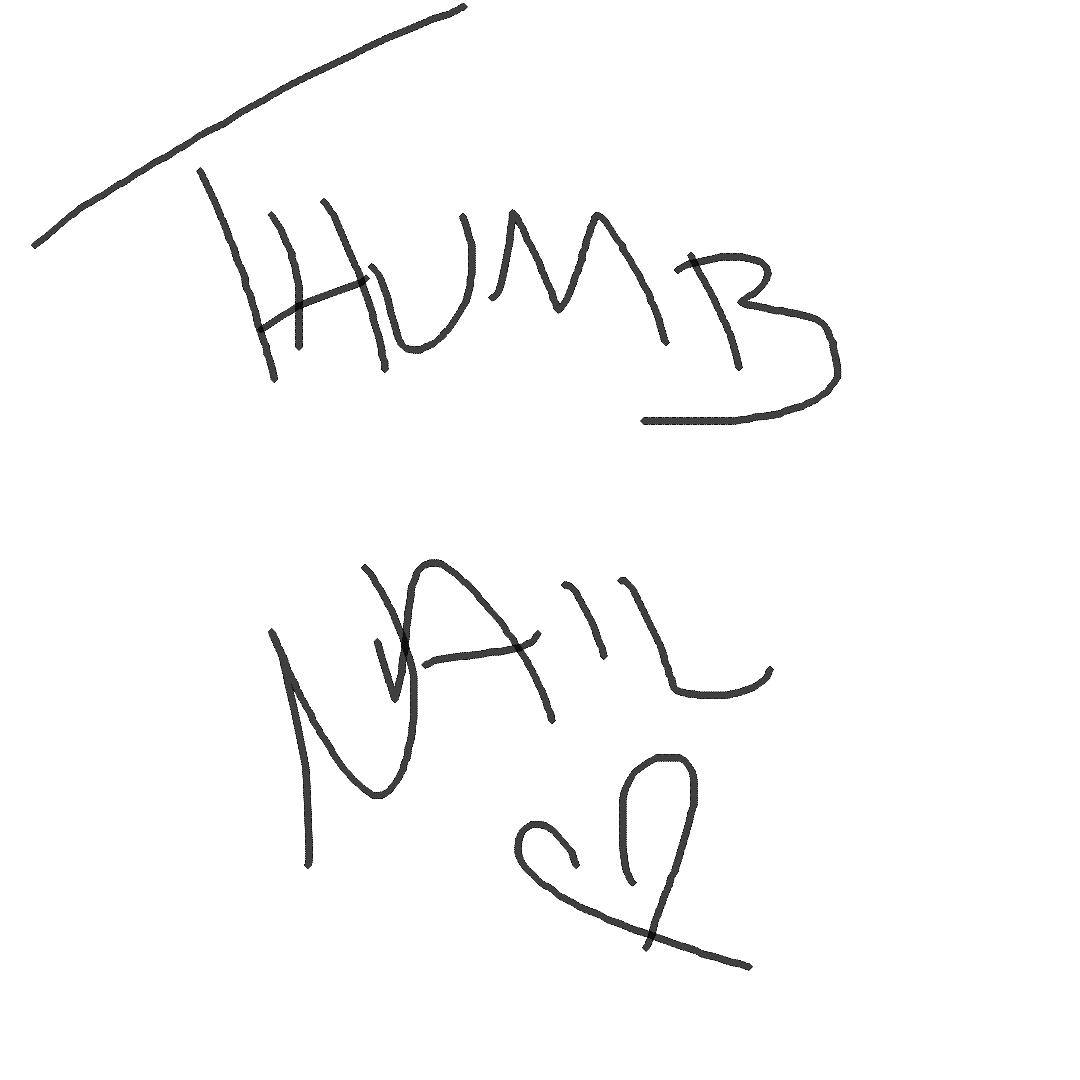 THUMB
NAIL